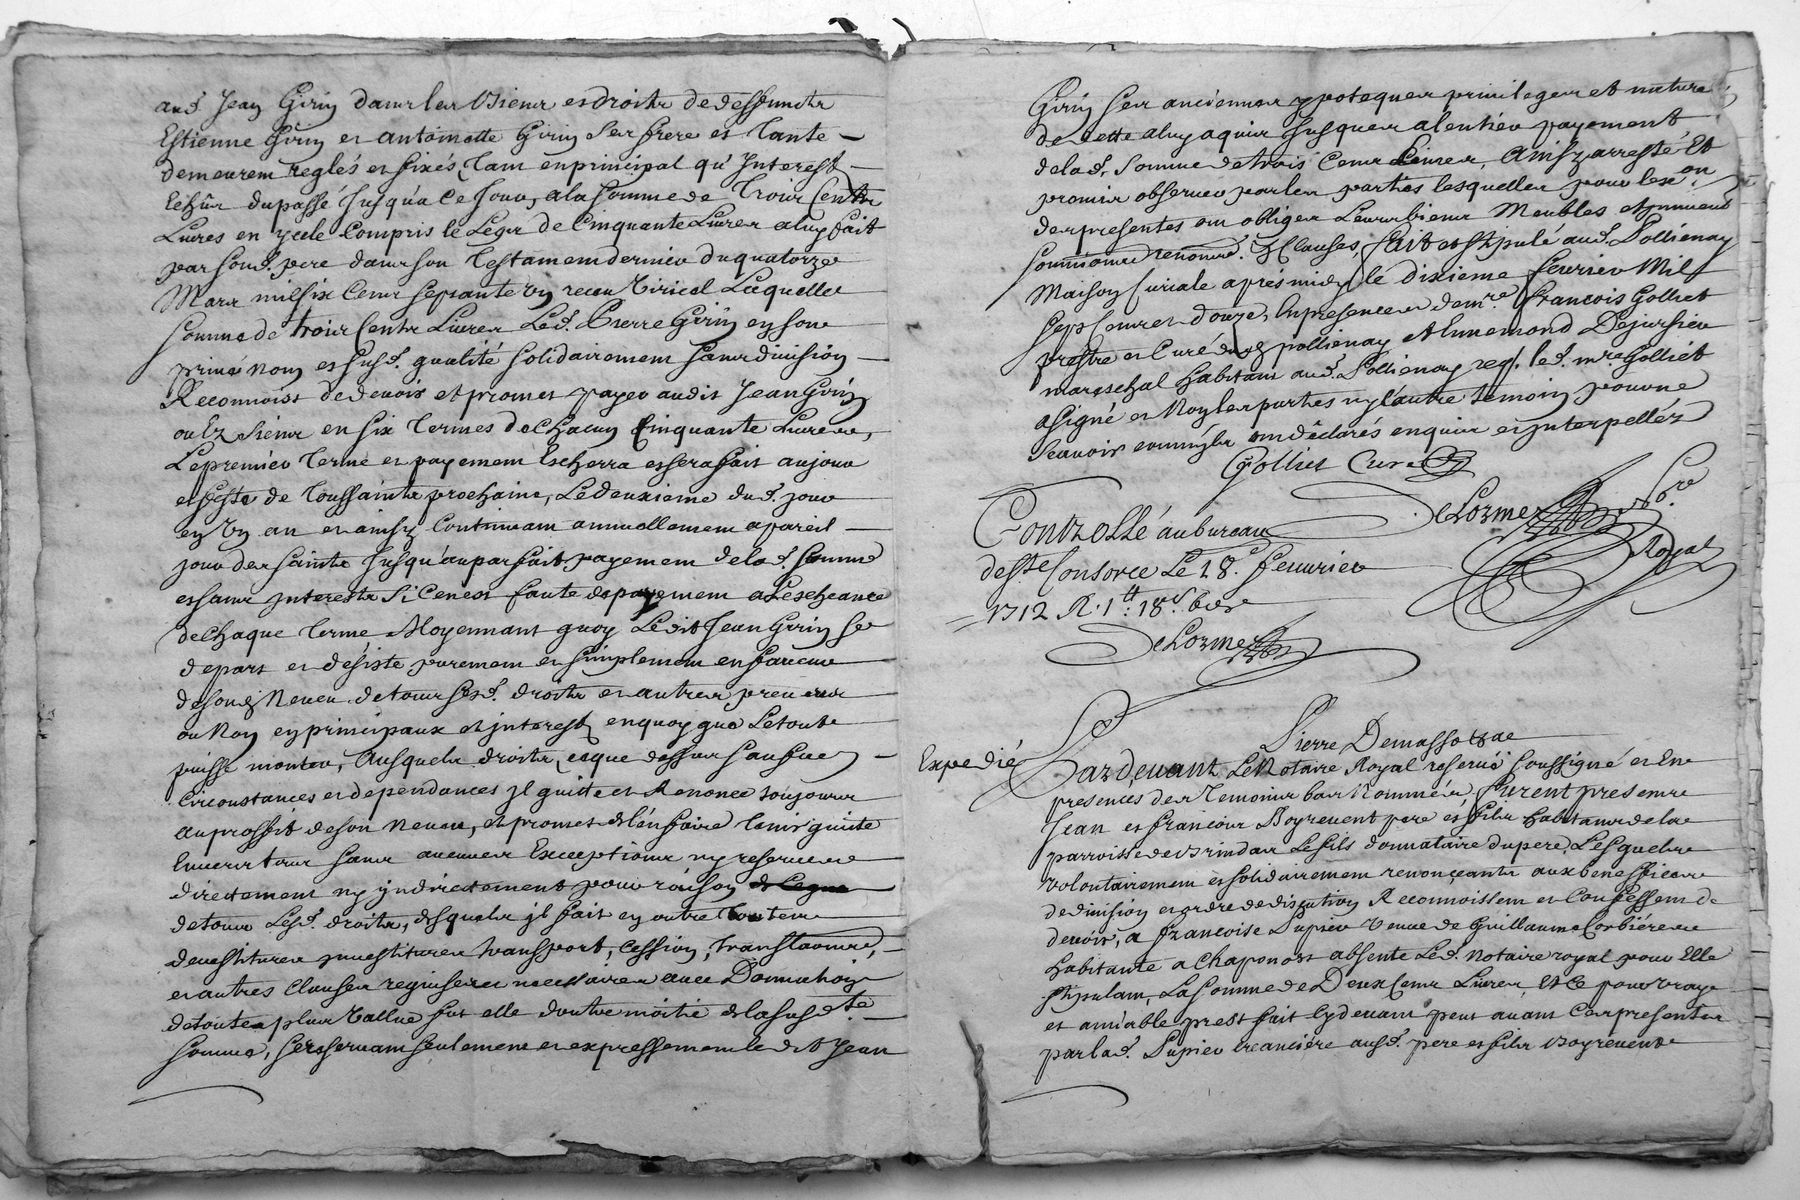 aud. Jean Girin dans les biens et droits de deffuncts
Estienne Girin et antoinette Girin ses frere et Tante
demeurent reglés et fixés, tant en principal qu'Interest
Echûs du passé Jusqu'a ce Jour, a la somme de Trois Cents
Livres en ycelle Compris le Légat de Cinquante Livres a luy fait
par soud. pere dans son Testament dernier du quatorze
Mars mil six Cens septante un receu Tiricol Laquelle
somme de trois Cents Livres Led. Pierre Girin en son
privé nom et susd. qualité solidairement sans division
Reconnoist de devoir et promet payer audit Jean Girin
ou Es siens en six Termes de Chacun Cinquante Livres,
Le premier Terme et payement Escherra et sera fait au jour
et feste de Toussaints prochaine, Le deuxieme dud. jour
en un an et ainsy Continuant annuellement a pareil
jour des saints Jusqu'au parfait payement de lad. somme
et sans Interests Si Ce n'est faute de payement a L'escheance
de Chaque Terme, Moyennant quoy Ledit Jean Girin se
depart et désiste purement et simplement en faveur
de sond. Neveu de tous sesd. droits et autres, preveus
ou Non en principaux et interest, en quoy que Le tout
puisse monter, Ausquels droits, et que dessus sans feu
Circonstances et dependances il quitte et Renonce toujours
au proffit de son neveu, et promet de l'en faire tenir quitte
Envers tous sans aucunes Exceptions ny reserves
directement ny indirectement pour raison
de tous Lesd. droits, desquels il fait en outre Toutes
devestitures investitures transport, cession, translations,
et autres Clauses requises et necessaires avec Donnation
de toute plus Vallue fut elle d'outre moitié de la susd.te
somme, se reservant seulement et expressement ledit Jean
Girin ses anciennes ypoteques privileges et nature
de dette a luy aquis Jusques a l'entier payement
de lad. somme de trois Cens Livres, Ainsy arresté Et
promis observer par les parties lesquelles pour l'ex.on
des presentes ont obligés Leurs biens Meubles et Immeubles
soumissions renonce. & Clauses, fait et stipulé aud. Pollienay
Maison Curiale aprés midy le dixieme fevrier Mil
Sept Cens et douze, En presence de m.re françois Golliet
prestre et Curé dud. pollienay et Annemond Dejussieu
mareschal habitant aud. Pollienay req. led. m.re Golliet
a signé et Non les parties ny l'autre temoin pour ne
scavoir comme ils ont déclarés enquis et interpellés
Golliet Curé
De Lorme no.re
Royal
Controllé au bureau
de St.e Consorce Le 18.e feuvrier
1712 R. 1 tt: 18 s.
DeLorme
Pierre Demassotxae
Expedié
Pardevant Le Notaire Royal reservé soussigné et En
presences des Temoins bas Nommés, furent presens
Jean et françois Boyrevent pere et fils habitans de la
parroisse de Brindas Le fils donnataire du pere, Lesquels
volontairement et solidairement renonçants aux benefices
de division et ordre de discution Reconnoissent et Confessent de
devoir, a françoise Dupier Veuve de Guillaume Corbiere
habitante a Chaponost absente Led. Notaire royal pour Elle
stipulant, La somme de Deux Cens Livres, Et Ce pour vray
et amiable prest fait Cydevant peut avant Ces presentes
par lad. Dupier creanciére ausd. pere et fils Boyrevent